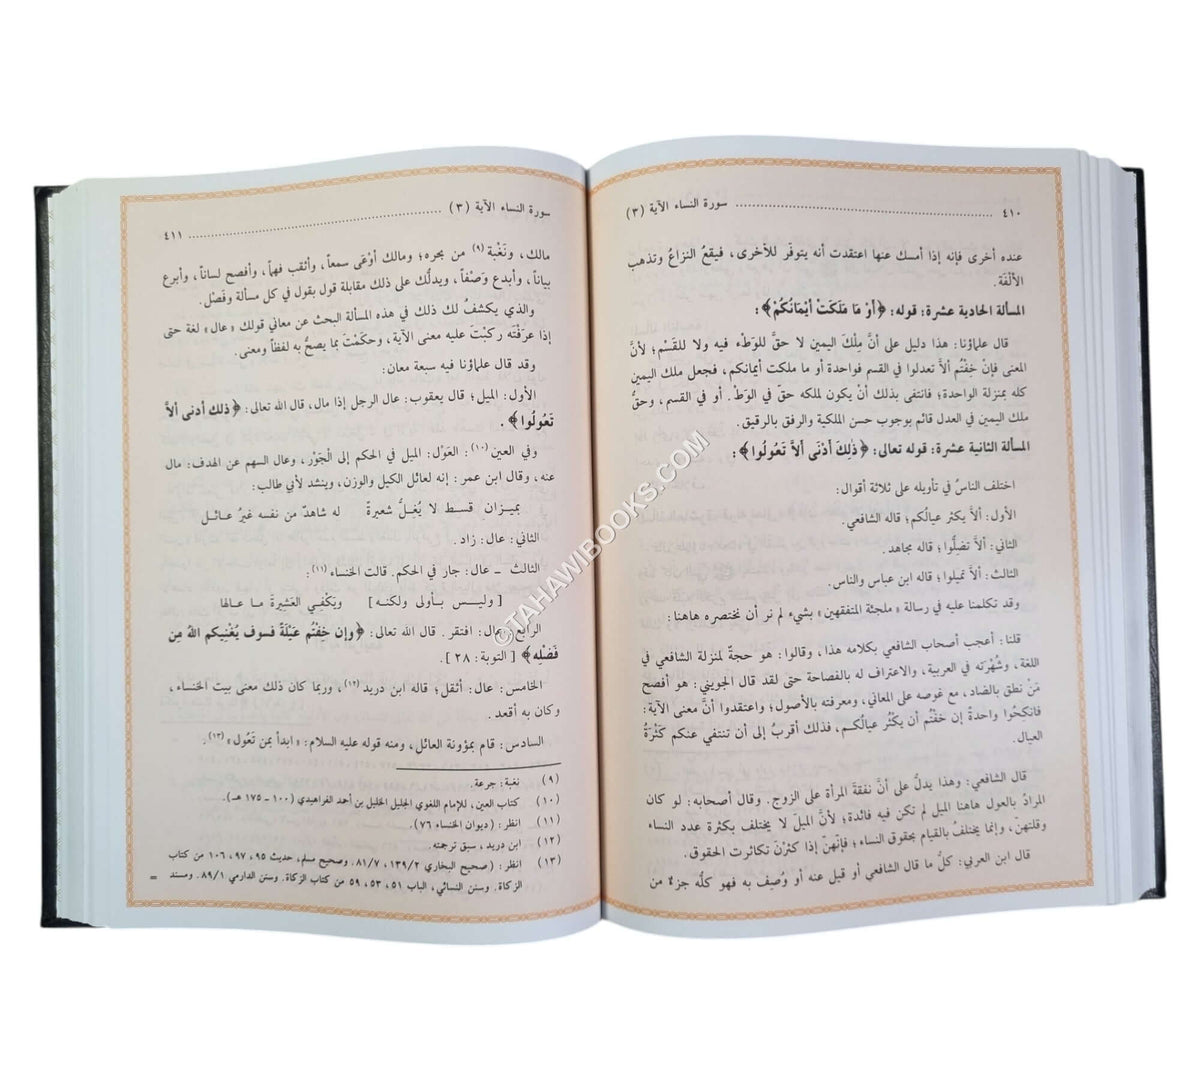 ٤١٠ ........ سورة النساء الآية (٣)
عنده أخرى فإنه إذا أمسك عنها اعتقدت أنه يتوفّر للأخرى، فيقعُ النزاعُ وتذهب
الألْفَة.
المسألة الحادية عشرة: قوله: ﴿أَوْ مَا مَلَكَتْ أَيْمَانُكُمْ﴾:
قال علماؤنا: هذا دليل على أنَّ مِلْكَ اليمين لا حقَّ للوَطْء فيه ولا للقَسْم؛ لأنَّ
المعنى فإنْ خِفْتُم ألاَّ تعدلوا في القسم فواحدة أو ما ملكت أيمانكم، فجعل ملك اليمين
كله بمنزلة الواحدة؛ فانتفى بذلك أنْ يكون لملكه حق في الوَطْ. أو في القسم، وحقُّ
ملك اليمين في العدل قائم بوجوب حسن الملكية والرفق بالرقيق.
المسألة الثانية عشرة: قوله تعالى: ﴿ذَٰلِكَ أَدْنَى أَلاَّ تَعُولُوا﴾:
اختلف الناسُ في تأويله على ثلاثة أقوال:
الأول: ألاَّ يكثر عيالُكم؛ قاله الشافعي.
الثاني: ألاَّ تضلُّوا؛ قاله مجاهد.
الثالث: ألاَّ تميلوا؛ قاله ابن عباس والناس.
وقد تكلمنا عليه في رسالة «ملجئة المتفقهين» بشيء لم نر أن نختصره هاهنا:
قلنا: أعجب أصحاب الشافعي بكلامه هذا، وقالوا: هو حجةٌ لمنزلة الشافعي في
اللغة، وشُهْرته في العربية، والاعتراف له بالفصاحة حتى لقد قال الجويني: هو أفصح
مَنْ نطق بالضاد، مع غوصه على المعاني، ومعرفته بالأصول؛ واعتقدوا أنَّ معنى الآية:
فانكِحُوا واحدةً إن خفْتُم أن يكْثُر عيالُكم، فذلك أقربُ إلى أن تنتفي عنكم كَثْرَةُ
العيال.
قال الشافعي: وهذا يدلُّ على أنَّ نفقةَ المرأة على الزوج. وقال أصحابه: لو كان
المرادُ بالعول هاهنا الميل لم تكن فيه فائدة؛ لأنَّ الميلَ لا يختلف بكثرة عدد النساء
وقلتهنّ، وإنما يختلفُ بالقيام بحقوق النساء؛ فإنّهنّ إذا كثرْنَ تكاثرت الحقوق.
قال ابن العربي: كلُّ ما قال الشافعي أو قيل عنه أو وُصِف به فهو كلّه جزء من
سورة النساء الآية (٣) ........ ٤١١
مالك، ونَغْبة (٩) من بحره؛ ومالك أوْعَى سمعاً، وأثقب فهماً، وأفصح لساناً، وأبرع
بياناً، وأبدع وَصْفاً، ويدلُّك على ذلك مقابلة قول بقول في كل مسألة وفَصْل.
والذي يكشفُ لك ذلك في هذه المسألة البحث عن معاني قولك «عال» لغة حتى
إذا عرَفْتَه ركبْتَ عليه معنى الآية، وحكَمْتَ بما يصحُّ به لفظاً ومعنى.
وقد قال علماؤنا فيه سبعة معان:
الأول: الميل؛ قال يعقوب: عال الرجل إذا مال، قال الله تعالى: ﴿ذلك أدنى ألاَّ
تَعُولُوا﴾.
وفي العين (١٠): العَوْل: الميل في الحكم إلى الْجَوْر، وعال السهم عن الهدف: مال
عنه، وقال ابن عمر: إنه لعائل الكيل والوزن، وينشد لأبي طالب:
بميـزان قسـط لا يُغِـلُّ شعيرةً له شاهدٌ من نفسه غيرُ عـائـل
الثاني: عال: زاد.
الثالث ـ عال: جار في الحكم. قالت الخنساء (١١):
[وليـس بـأولى ولكنـه] ويَكْفِي العَشيرةَ مـا عـالهَا
الرابع: عال: افتقر. قال الله تعالى: ﴿وإن خِفْتُم عَيْلَةً فسوف يُغْنيكم اللهُ مِن
فَضْلِهِ﴾ [التوبة: ٢٨].
الخامس: عال: أثقل؛ قاله ابن دريد (١٢)، وربما كان ذلك معنى بيت الخنساء،
وكان به أقعد.
السادس: قام بمؤونة العائل، ومنه قوله عليه السلام: «ابدأ بمن تَعُول» (١٣).
(٩) نغبة: جرعة.
(١٠) كتاب العين، للإمام اللغوي الجليل الخليل بن أحمد الفراهيدي (١٠٠ - ١٧٥ هـ).
(١١) انظر: (ديوان الخنساء ٧٦).
(١٢) ابن دريد، سبق ترجمته.
(١٣) انظر: (صحيح البخاري ١٣٩/٢، ٨١/٧. وصحيح مسلم، حديث ٩٥، ٩٧، ١٠٦ من كتاب
الزكاة. وسنن النسائي، الباب ٥١، ٥٣، ٥٩ من كتاب الزكاة. وسنن الدارمي ٨٩/١. ومسند =
©TAHAWIBOOKS.COM